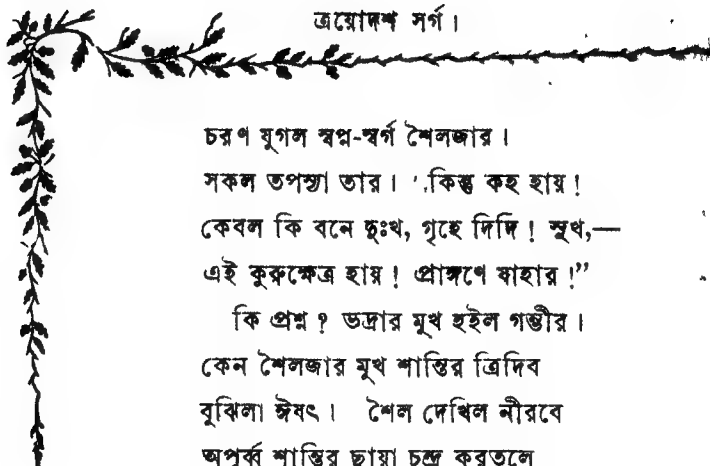 ত্রয়োদশ সর্গ।
চরণ যুগল স্বপ্ন-স্বর্গ শৈলজার।
সকল তপস্যা তার। কিন্তু কহ হায়!
কেবল কি বনে দুঃখ, গৃহে দিদি! সুখ,—
এই কুরুক্ষেত্র হায়! প্রাঙ্গণে যাহার!”
কি প্রশ্ন? ভদ্রার মুখ হইল গম্ভীর।
কেন শৈলজার মুখ শান্তির ত্রিদিব
বুঝিলা ঈষৎ। শৈল দেখিল নীরবে
অপূর্ব্ব শান্তির ছায়া চন্দ্র করতলে